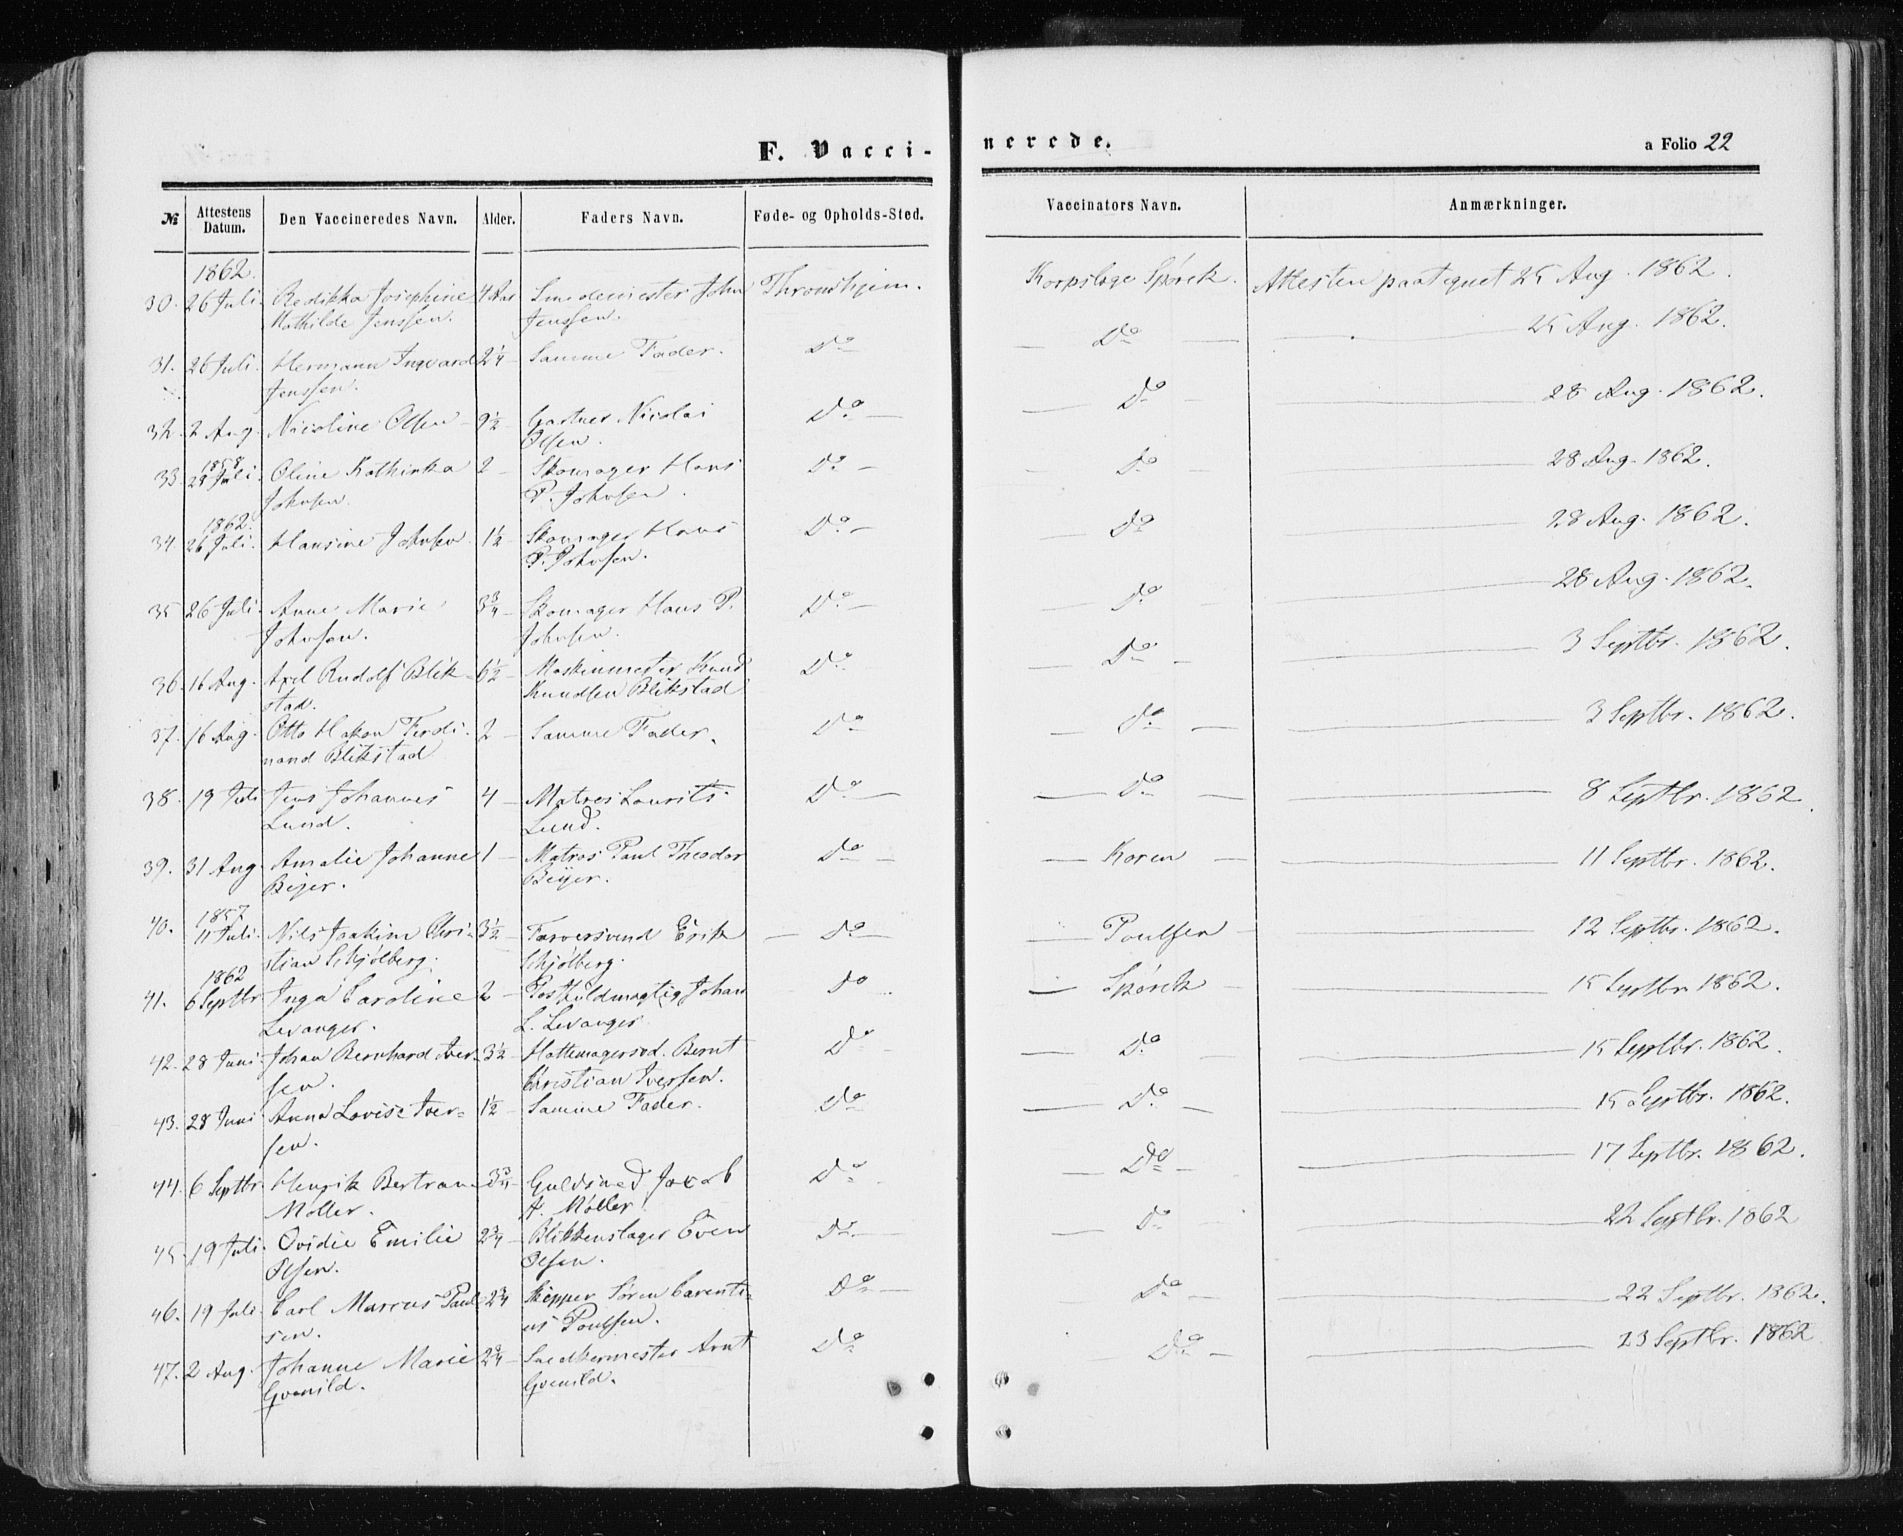 F. Vacci- nerede. a Folio 22
№ Attestens Datum. Den Vaccineredes Navn. Alder. Faders Navn. Føde- og Opholds-Sted. Vaccinators Navn. Anmærkninger.
1862.
30. 26 Juli. Josephine 4 Aar Smedemester John Throndhjem. Korpslæge Spørck. Attesten paategnet 25 Aug. 1862.
Mathilde Jenssen. Jenssen.
31. 26 Juli. Hermann Ingvard 2 1/4 - Samme Fader. Do Do 25 Aug. 1862.
Jenssen.
32. 2 Aug. Nicoline Olsen 9 1/2 - Gartner Nicolai Do Do 28 Aug. 1862.
Olsen.
1858
33. 24 Juli. Oline Kathinka 2 - Skomager Hans Do Do 28 Aug. 1862.
Johnsen. P. Johnsen.
1862.
34. 26 Juli. Hansine Johnsen 1 1/2 - Skomager Hans Do Do 28 Aug. 1862.
P. Johnsen.
35 26 Juli. Anne Marie 3 3/4 - Skomager Hans P. Do Do 28 Aug. 1862.
Johnsen. Johnsen.
36. 16 Aug. Axel Rudolf Blik- 6 1/2 - Maskinmester Knud Do Do 3 Septbr. 1862.
stad. Knudsen Blikstad
37. 16 Aug. Otto Hakon Ferdi- 2 - Samme Fader. Do Do 3 Septbr. 1862.
nand Blikstad
38. 19 Juli Jens Johannes 4 - Matros Laurits Do Do 8 Septbr. 1862.
Lund. Lund.
39. 31 Aug. Amalie Johanne 1 - Matros Paul Theodor Do Koren 11 Septbr. 1862.
Beyer. Beyer.
1857
40. 11 Juli. Nils Joakim Chri- 3 1/2 - Farversvend Erik Do Poulsen 12 Septbr. 1862.
stian Schjølberg. Schjølberg.
1862
41. 6 Septbr Inga Caroline 2 - Postfuldmægtig Johan Do Spørck 15 Septbr. 1862.
Levanger. L. Levanger
42. 28 Juni. Johan Bernhard Iver- 3 1/2 - Hattemagersvd. Bernt Do Do 15 Septbr. 1862.
sen. Christian Iversen.
43. 28 Juni Anna Lovise Iver- 1 1/2 - Samme Fader. Do Do 15 Septbr. 1862.
sen.
44. 6 Septbr. Henrik Bertram 3 3/4 - Guldsmed Jacob Do Do 17 Septbr. 1862.
Møller. A. Møller
45. 19 Juli. Ovidie Emilie 2 3/4 - Blikkenslager Even Do Do 22 Septbr. 1862
Olsen. Olsen.
46. 19 Juli. Carl Marcus Paul- 2 3/4 Skipper Søren Carenti- Do Do 22 Septbr. 1862.
sen. us Poulsen.
47. 2 Aug. Johanne Marie 2 3/4 - Snedkermester Arnt Do Do 23 Septbr. 1862
Gvenild. Gvenild.